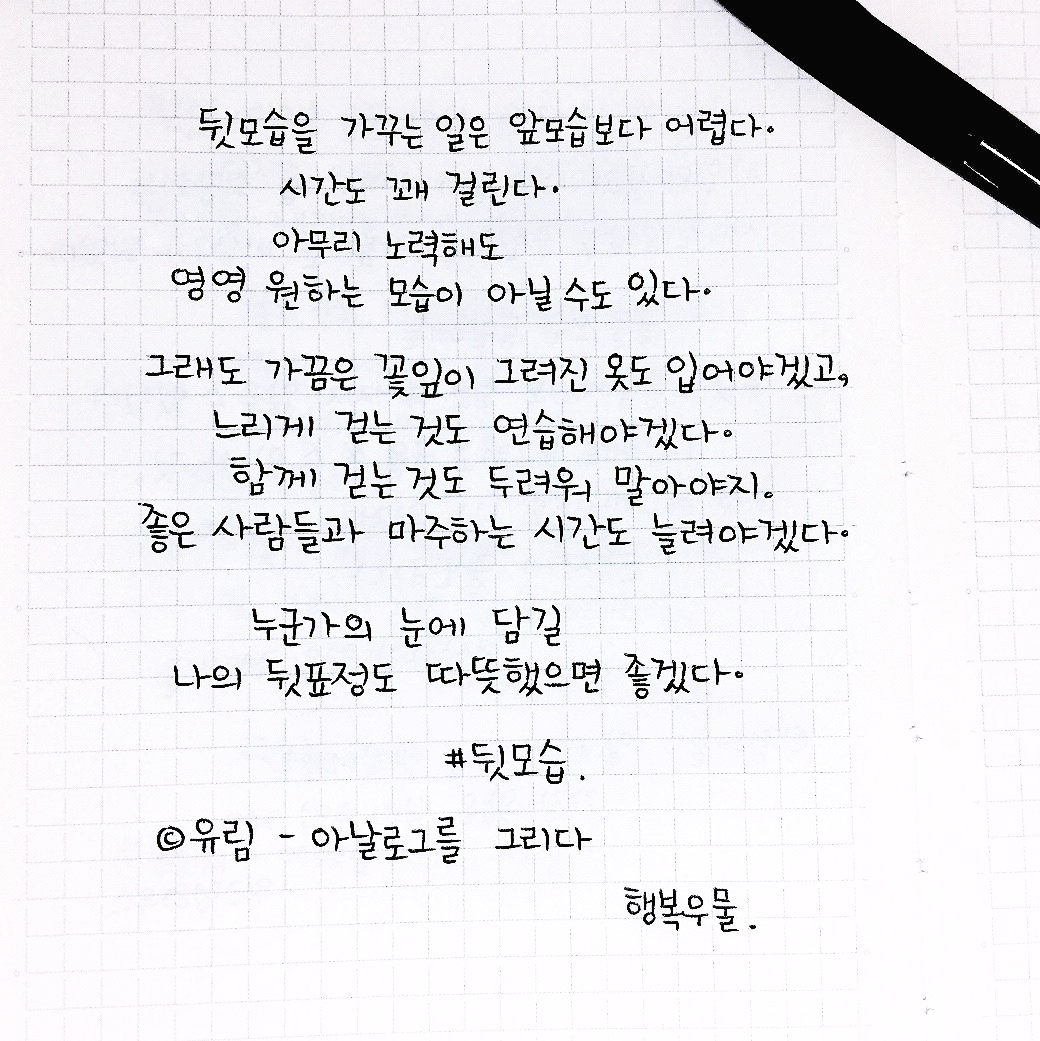 뒷모습을 가꾸는 일은 앞모습보다 어렵다.
시간도 꽤 걸린다.
아무리 노력해도
영영 원하는 모습이 아닐 수도 있다.
그래도 가끔은 꽃잎이 그려진 옷도 입어야겠고,
느리게 걷는 것도 연습해야겠다.
함께 걷는 것도 두려워 말아야지.
좋은 사람들과 마주하는 시간도 늘려야겠다.
누군가의 눈에 담길
나의 뒷표정도 따뜻했으면 좋겠다.
#뒷모습.
©유림 - 아날로그를 그리다
행복우물.